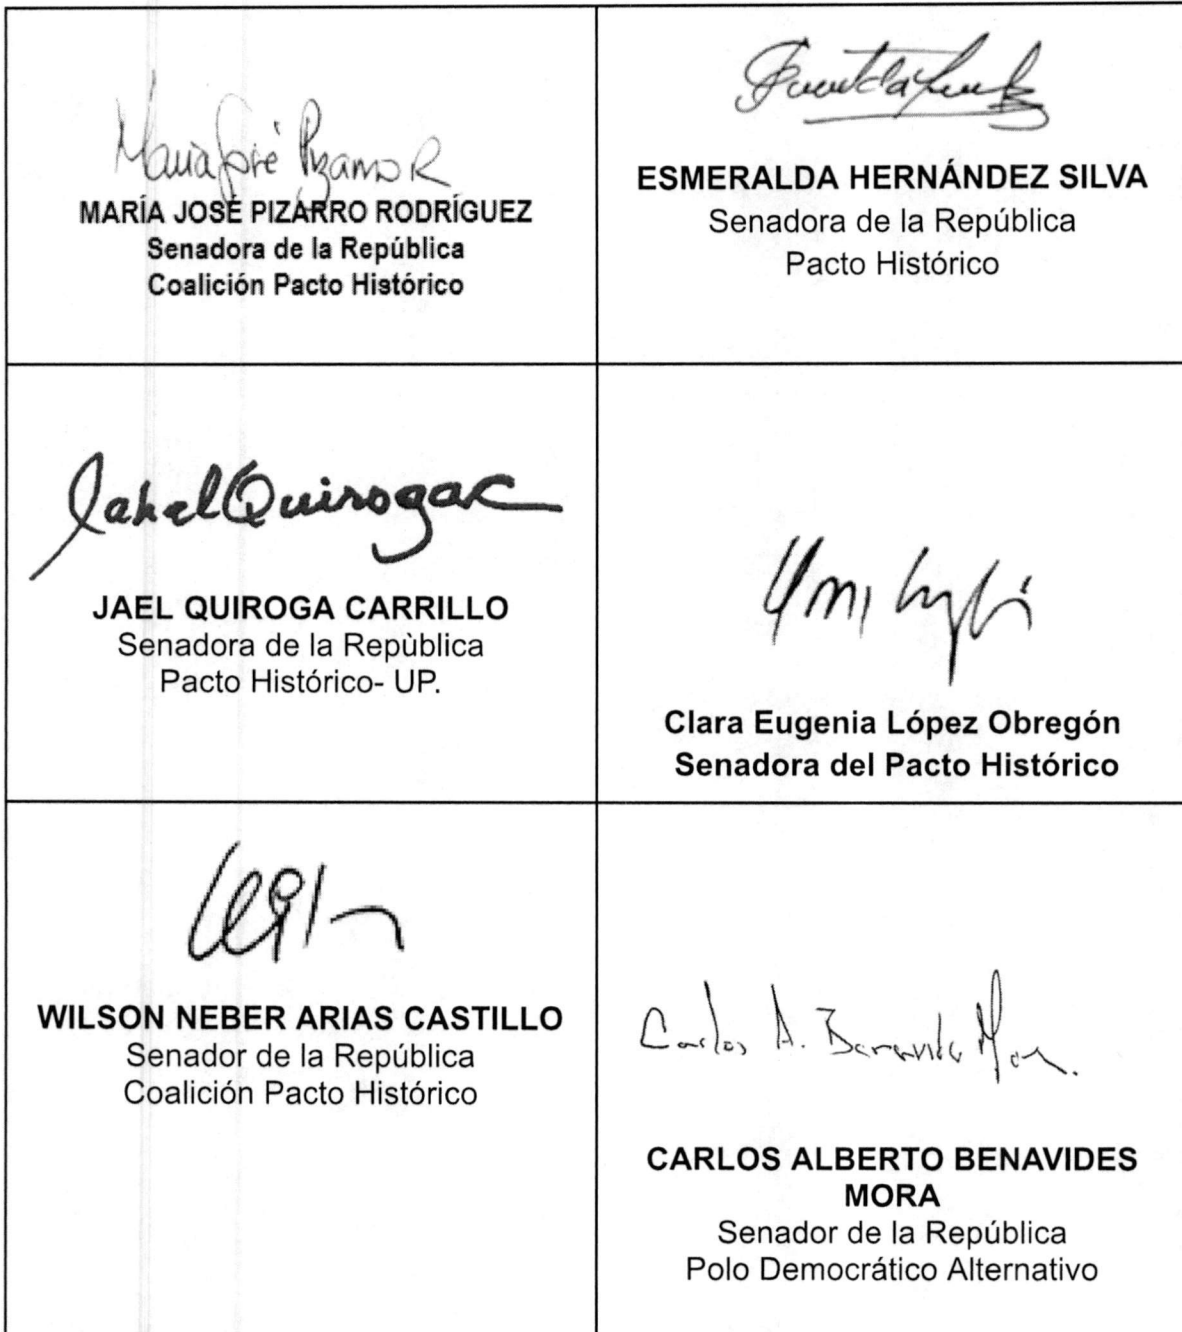 Maria José Pizarro R
MARÍA JOSÉ PIZARRO RODRÍGUEZ
Senadora de la República
Coalición Pacto Histórico
ESMERALDA HERNÁNDEZ SILVA
Senadora de la República
Pacto Histórico
Jahel Quiroga C
JAEL QUIROGA CARRILLO
Senadora de la Repùblica
Pacto Histórico- UP.
Clara Eugenia López Obregón
Senadora del Pacto Histórico
WILSON NEBER ARIAS CASTILLO
Senador de la República
Coalición Pacto Histórico
Carlos A. Benavides Mora.
CARLOS ALBERTO BENAVIDES
MORA
Senador de la República
Polo Democrático Alternativo